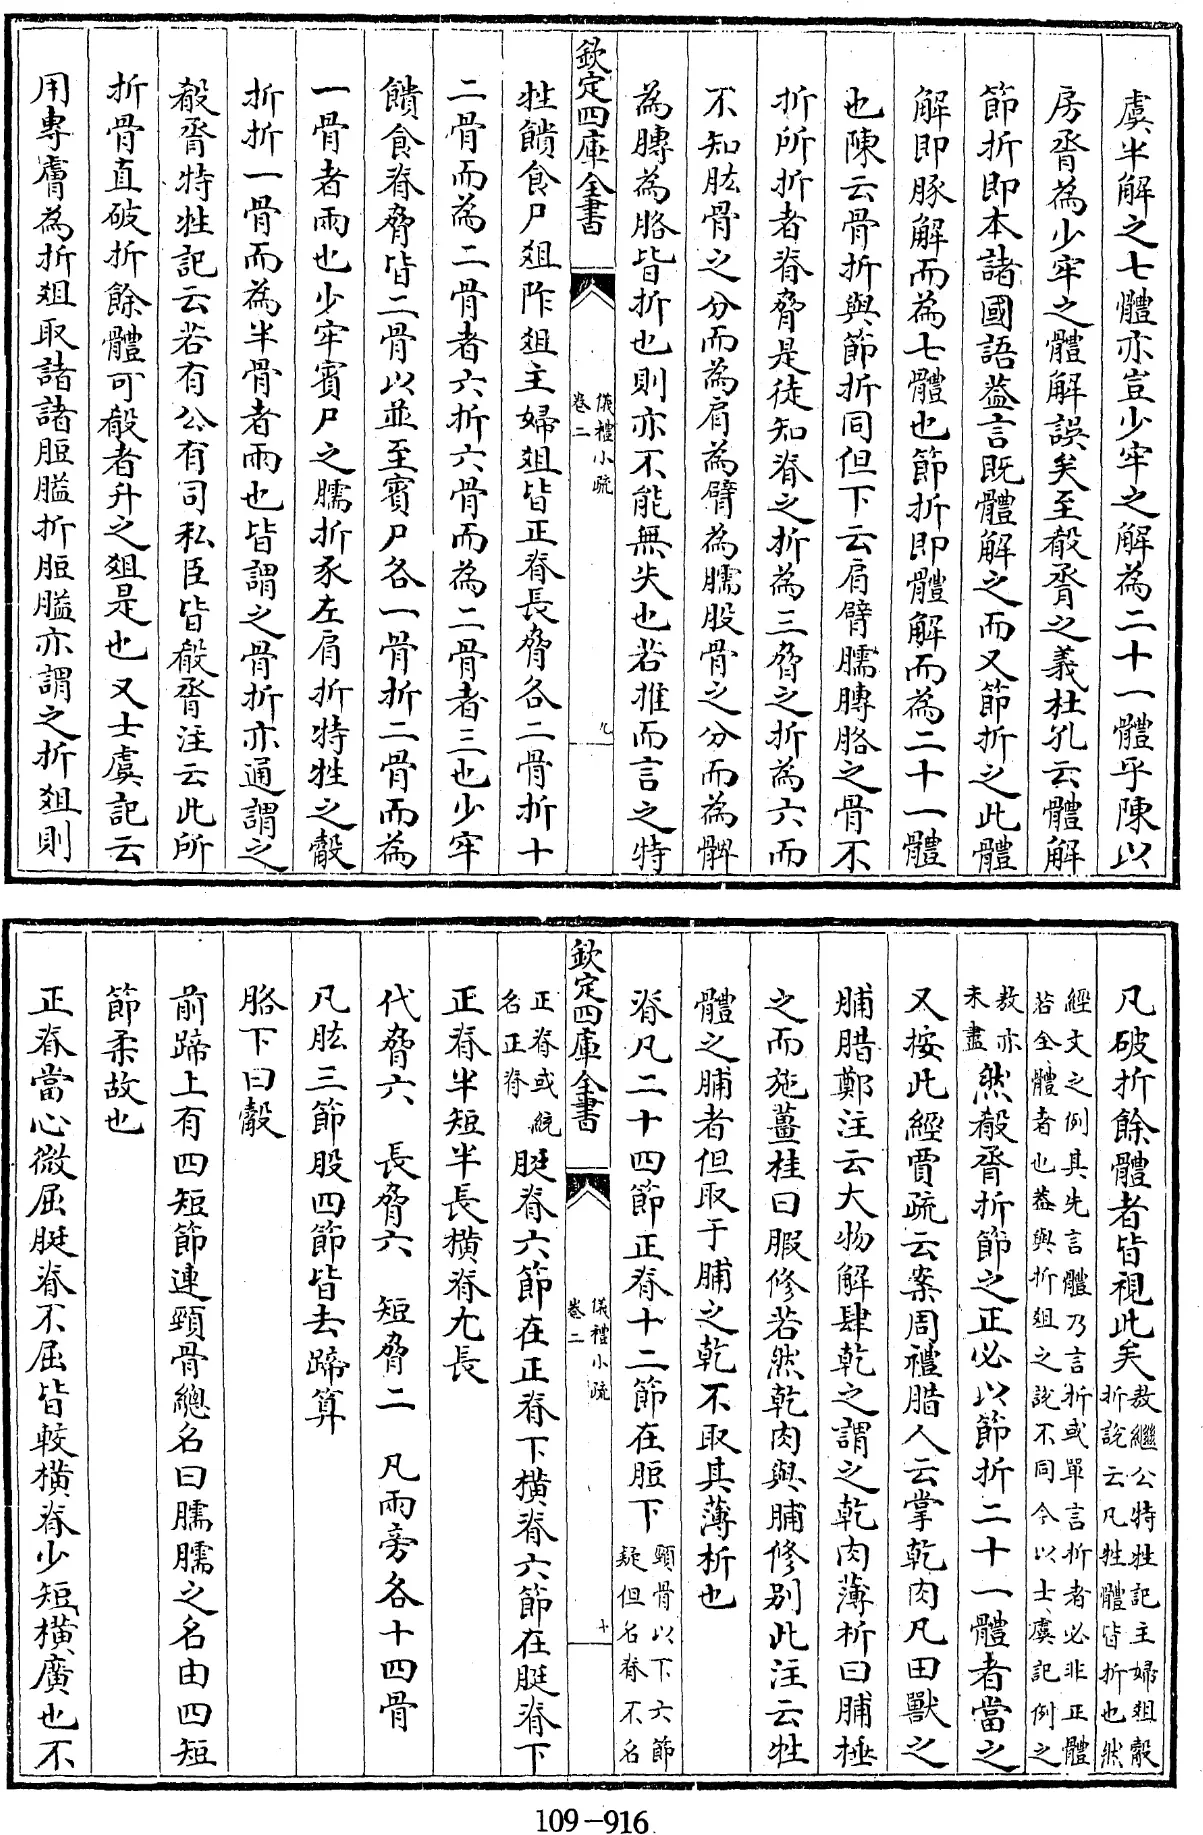 虞半解之七體亦豈少牢之解為二十一體乎陳以
房脀為少牢之體解誤矣至殽脀之義杜孔云體解
節折即本諸國語葢言既體解之而又節折之此體
解即豚解而為七體也節折即體解而為二十一體
也陳云骨折與節折同但下云肩臂臑膊胳之骨不
折所折者脊脅是徒知脊之折為三脅之折為六而
不知肱骨之分而為肩為臂為臑股骨之分而為髀
為膊為胳皆折也則亦不能無失也若推而言之特
欽定四庫全書
儀禮小疏
卷二
九
牲饋食尸俎阼俎主婦俎皆正脊長脅各二骨折十
二骨而為二骨者六折六骨而為二骨者三也少牢
饋食脊脅皆二骨以並至賓尸各一骨折二骨而為
一骨者兩也少牢賓尸之臑折豕左肩折特牲之觳
折折一骨而為半骨者兩也皆謂之骨折亦通謂之
殽脀特牲記云若有公有司私臣皆殽脀注云此所
折骨直破折餘體可殽者升之俎是也又士虞記云
用專膚為折俎取諸諸脰膉折脰膉亦謂之折俎則
凡破折餘體者皆視此矣敖繼公特牲記主婦俎觳
折說云凡牲體皆折也然
經文之例其先言體乃言折或單言折者必非正體
若全體者也葢與折俎之說不同今以士虞記例之
敖亦
未盡然殽脀折節之正必以節折二十一體者當之
又按此經賈疏云案周禮腊人云掌乾肉凡田獸之
脯腊鄭注云大物解肆乾之謂之乾肉薄析曰脯捶
之而施薑桂曰腶修若然乾肉與脯修別此注云牲
體之脯者但取于脯之乾不取其薄析也
脊凡二十四節正脊十二節在脰下頸骨以下六節
疑但名脊不名
欽定四庫全書
儀禮小疏
卷二
十
正脊或統
名正脊脡脊六節在正脊下橫脊六節在脡脊下
正脊半短半長橫脊尢長
代脅六 長脅六 短脅二 凡兩旁各十四骨
凡肱三節股四節皆去蹄算
胳下曰觳
前蹄上有四短節連頸骨總名曰臑臑之名由四短
節柔故也
正脊當心微屈脡脊不屈皆較橫脊少短橫廣也不
109-916